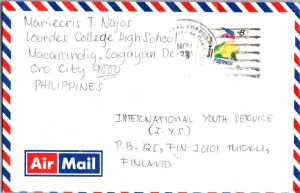 Mariecris T. Najos
Lourdes College High School
Macasandig, Cagayan De
Oro City 9000
PHILIPPINES
NOV
INTERNATIONAL YOUTH SERVICE
(I.Y.S.)
P.B. 125, FIN-20101 TURKU,
FINLAND
Air Mail